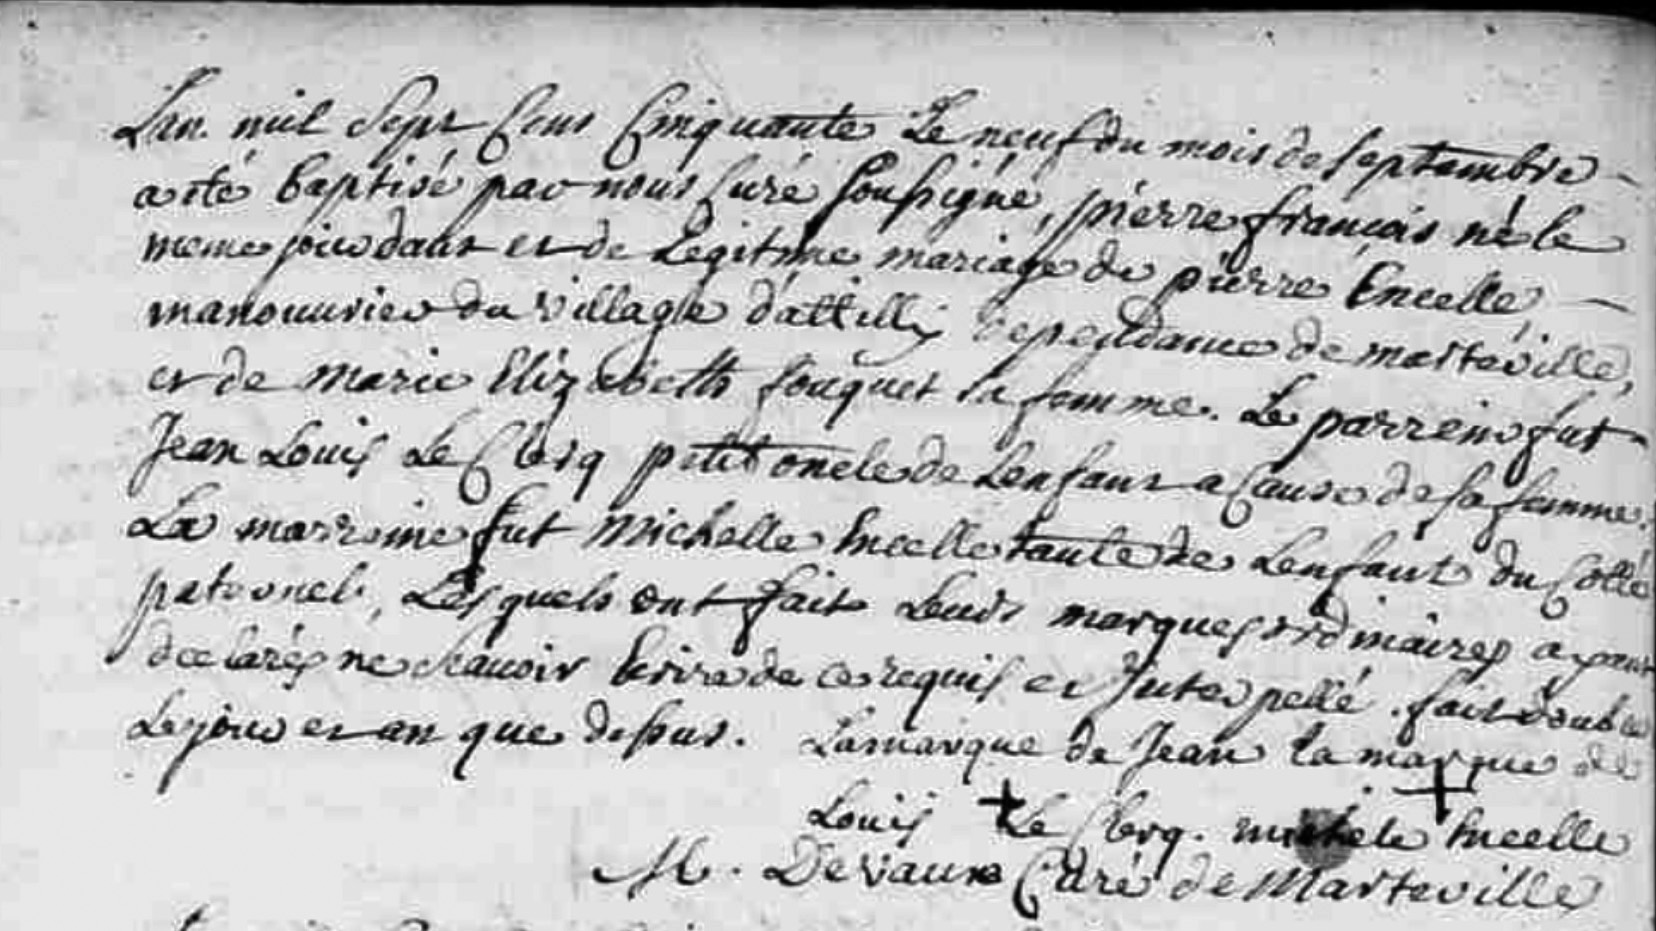 Lan mil sept Cens Cinquante Le neuf du mois de septembre
a eté baptisé par nous Curé soussigné, pierre françois né le
meme jour dans et de Legitime mariage de pierre Encelle,
manouvrier du village d'attilly dependance de marteville,
et de marie Elizabeth fouquet sa femme. Le parrein fut
Jean Louis Le Clerq petit oncle de Lenfant a Cause de sa femme.
La marreine fut Michelle Encelle tante de Lenfant du Collé
paternel, Lesquels ont fait Leurs marques ordinaires ayant
declarés ne scauoir Ecrire de ce requis et Interpellé. fait double
Le jour et an que dessus. La marque de Jean la marque de
Louis Le Clerq. michele Encelle
M. Devaux Curé de Marteville